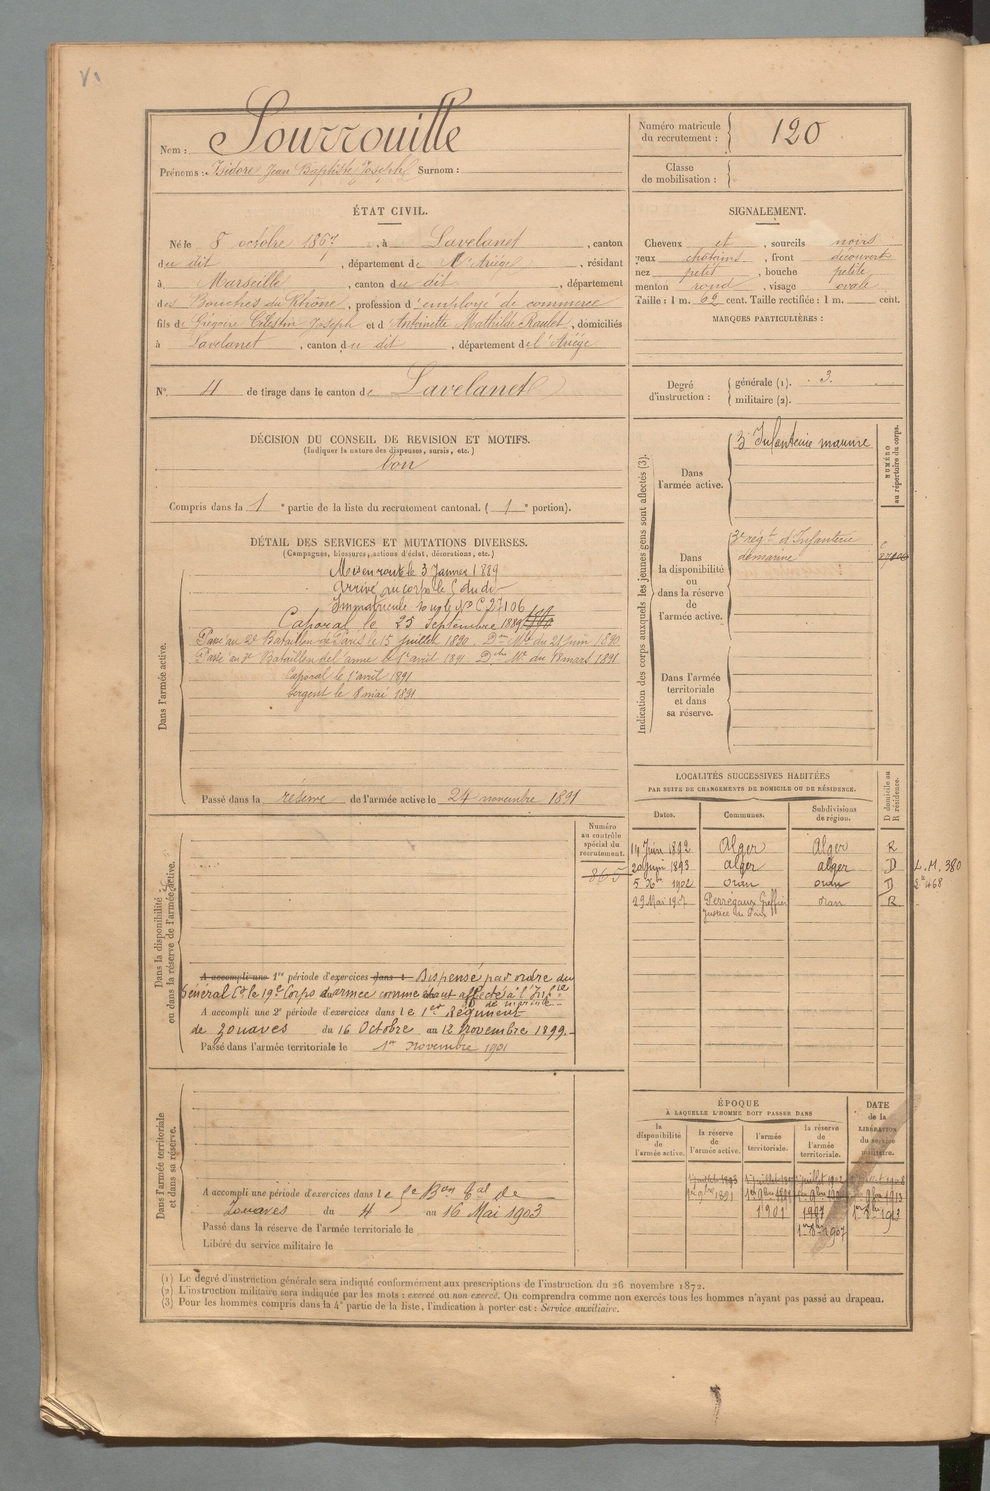 Nom : Sourrouille
Prénoms : Isidore Jean Baptiste Joseph Surnom :
Numéro matricule du recrutement : 120
Classe de mobilisation :
ÉTAT CIVIL.
Né le 8 octobre 1867, à Lavelanet, canton
du dit, département de l'Ariège, résidant
à Marseille, canton du dit, département
des Bouches du Rhône, profession d'employé de commerce
fils de Grégoire Célestin Joseph et d'Antoinette Mathilde Raulet, domiciliés
à Lavelanet, canton du dit, département de l'Ariège
SIGNALEMENT.
Cheveux et, sourcils noirs
yeux chatains, front découvert
nez petit, bouche petite
menton rond, visage ovale
Taille : 1 m. 62 cent. Taille rectifiée : 1 m. cent.
MARQUES PARTICULIÈRES :
N° 4 de tirage dans le canton de Lavelanet
Degré d'instruction : générale (1). 3.
militaire (2).
DÉCISION DU CONSEIL DE REVISION ET MOTIFS.
(Indiquer la nature des dispenses, sursis, etc.)
bon
Compris dans la 1e partie de la liste du recrutement cantonal. ( 1e portion).
DÉTAIL DES SERVICES ET MUTATIONS DIVERSES.
(Campagnes, blessures, actions d'éclat, décorations, etc.)
Dans l'armée active.
Mis en route le 3 Janvier 1889
Arrivé au corps le 5 du dit
Immatriculé sous le N° C 27106
Caporal le 25 Septembre 1889
Passé au 2e Bataillon de Paris le 15 juillet 1890. Don Mlle du 28 juin 1890
Passé au 7e Bataillon de l'arme le 1er avril 1891 Don Mlle du 18 mars 1891
Caporal le 1er avril 1891
Sergent le 8 mai 1891
Passé dans la réserve de l'armée active le 24 novembre 1891
Indication des corps auxquels les jeunes gens sont affectés (3).
NUMÉRO au répertoire du corps.
Dans l'armée active.
3e Infanterie marine
Dans la disponibilité ou dans la réserve de l'armée active.
3e régt d'Infanterie
de marine
Dans l'armée territoriale et dans sa réserve.
LOCALITÉS SUCCESSIVES HABITÉES
PAR SUITE DE CHANGEMENTS DE DOMICILE OU DE RÉSIDENCE.
Dates. Communes. Subdivisions de région. D domicile au R résidence.
14 Juin 1892 Alger Alger R
20 Juin 1893 alger alger D L.M. 380
5 Xbre 1902 oran oran D 2e 468
29 Mai 1907 Perrégaux Greffier Justice de Paix oran R
Dans la disponibilité ou dans la réserve de l'armée active.
Numéro au contrôle spécial du recrutement.
865
A accompli une 1re période d'exercices dans l Dispensé par ordre du
Général Ct le 19e Corps d'armée comme étant affecté à l'Infie
de marine
A accompli une 2e période d'exercices dans le 1er Régiment
de Zouaves du 16 Octobre au 12 Novembre 1899.
Passé dans l'armée territoriale le 1er Novembre 1901
Dans l'armée territoriale et dans sa réserve.
A accompli une période d'exercices dans le Bon tal de
Zouaves du 4 au 16 Mai 1903
Passé dans la réserve de l'armée territoriale le
Libéré du service militaire le
ÉPOQUE
À LAQUELLE L'HOMME DOIT PASSER DANS
la disponibilité de l'armée active. la réserve de l'armée active. l'armée territoriale. la réserve de l'armée territoriale. DATE de la LIBÉRATION du service militaire.
1901 1907
1907
(1) Le degré d'instruction générale sera indiqué conformément aux prescriptions de l'instruction du 26 novembre 1872.
(2) L'instruction militaire sera indiquée par les mots : exercé ou non exercé. On comprendra comme non exercés tous les hommes n'ayant pas passé au drapeau.
(3) Pour les hommes compris dans la 4e partie de la liste, l'indication à porter est : Service auxiliaire.